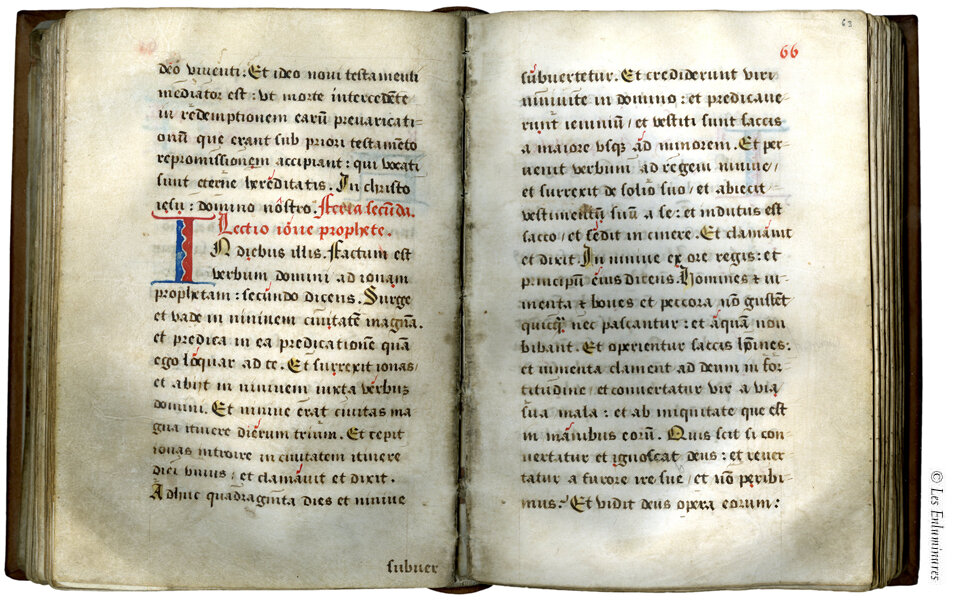 deo viventi : Et ideo novi testamenti
mediator est : ut morte intercedēte
in redemptionem earū prevaricati-
onū que erant sub priori testamēto
repromissionem accipiant : qui vocati
sunt eterne hereditatis . In christo
iesu : domino nostro . Feria secūda .
Lectio ione prophete .
IN diebus illis . Factum est
verbum domini ad ionam
prophetam : secūndo dicens . Surge
et vade in niniuem civitatē magnā .
et predica in ea predicationē quā
ego loquar ad te . Et surrexit ionas /
et abijt in niniuem iuxta verbuz
domini . Et niniue erat civitas ma
gna itinere dierum trium . Et cepit
ionas introire in civitatem itinere
diei unius / et clamavit et dixit .
Adhuc quadraginta dies et niniue
subuer
63
66
subvertetur . Et crediderunt viri
niniuite in domino : et predicave-
runt ieiuniū / et vestiti sunt saccis
a maiore usq; ad minorem . Et per-
venit verbum ad regem niniue /
et surrexit de solio suo / et abiecit
vestimentū suū a se : et indutus est
sacco / et sedit in cinere . Et clamavit
et dixit . In niniue ex ore regis : et
principū eius dicens . Homines et iu-
menta et boves et peccora nō gustēt
quicq̄ nec pascantur : et aquam non
bibant . Et operientur saccis hoīnes :
et iumenta clament ad deum in for-
titudine / et convertatur vir a via
sua mala : et ab iniquitate que est
in manibus eorū . Quis scit si con-
vertatur et ignoscat deus : et rever-
tatur a furore ire sue / et nō peribi-
mus : Et vidit deus opera eorum :
© Les Enluminures